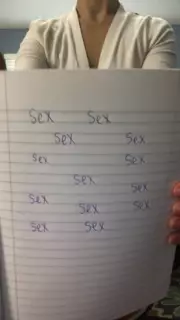 Sex Sex
Sex Sex
Sex Sex
Sex
Sex
Sex Sex
Sex
Sex Sex